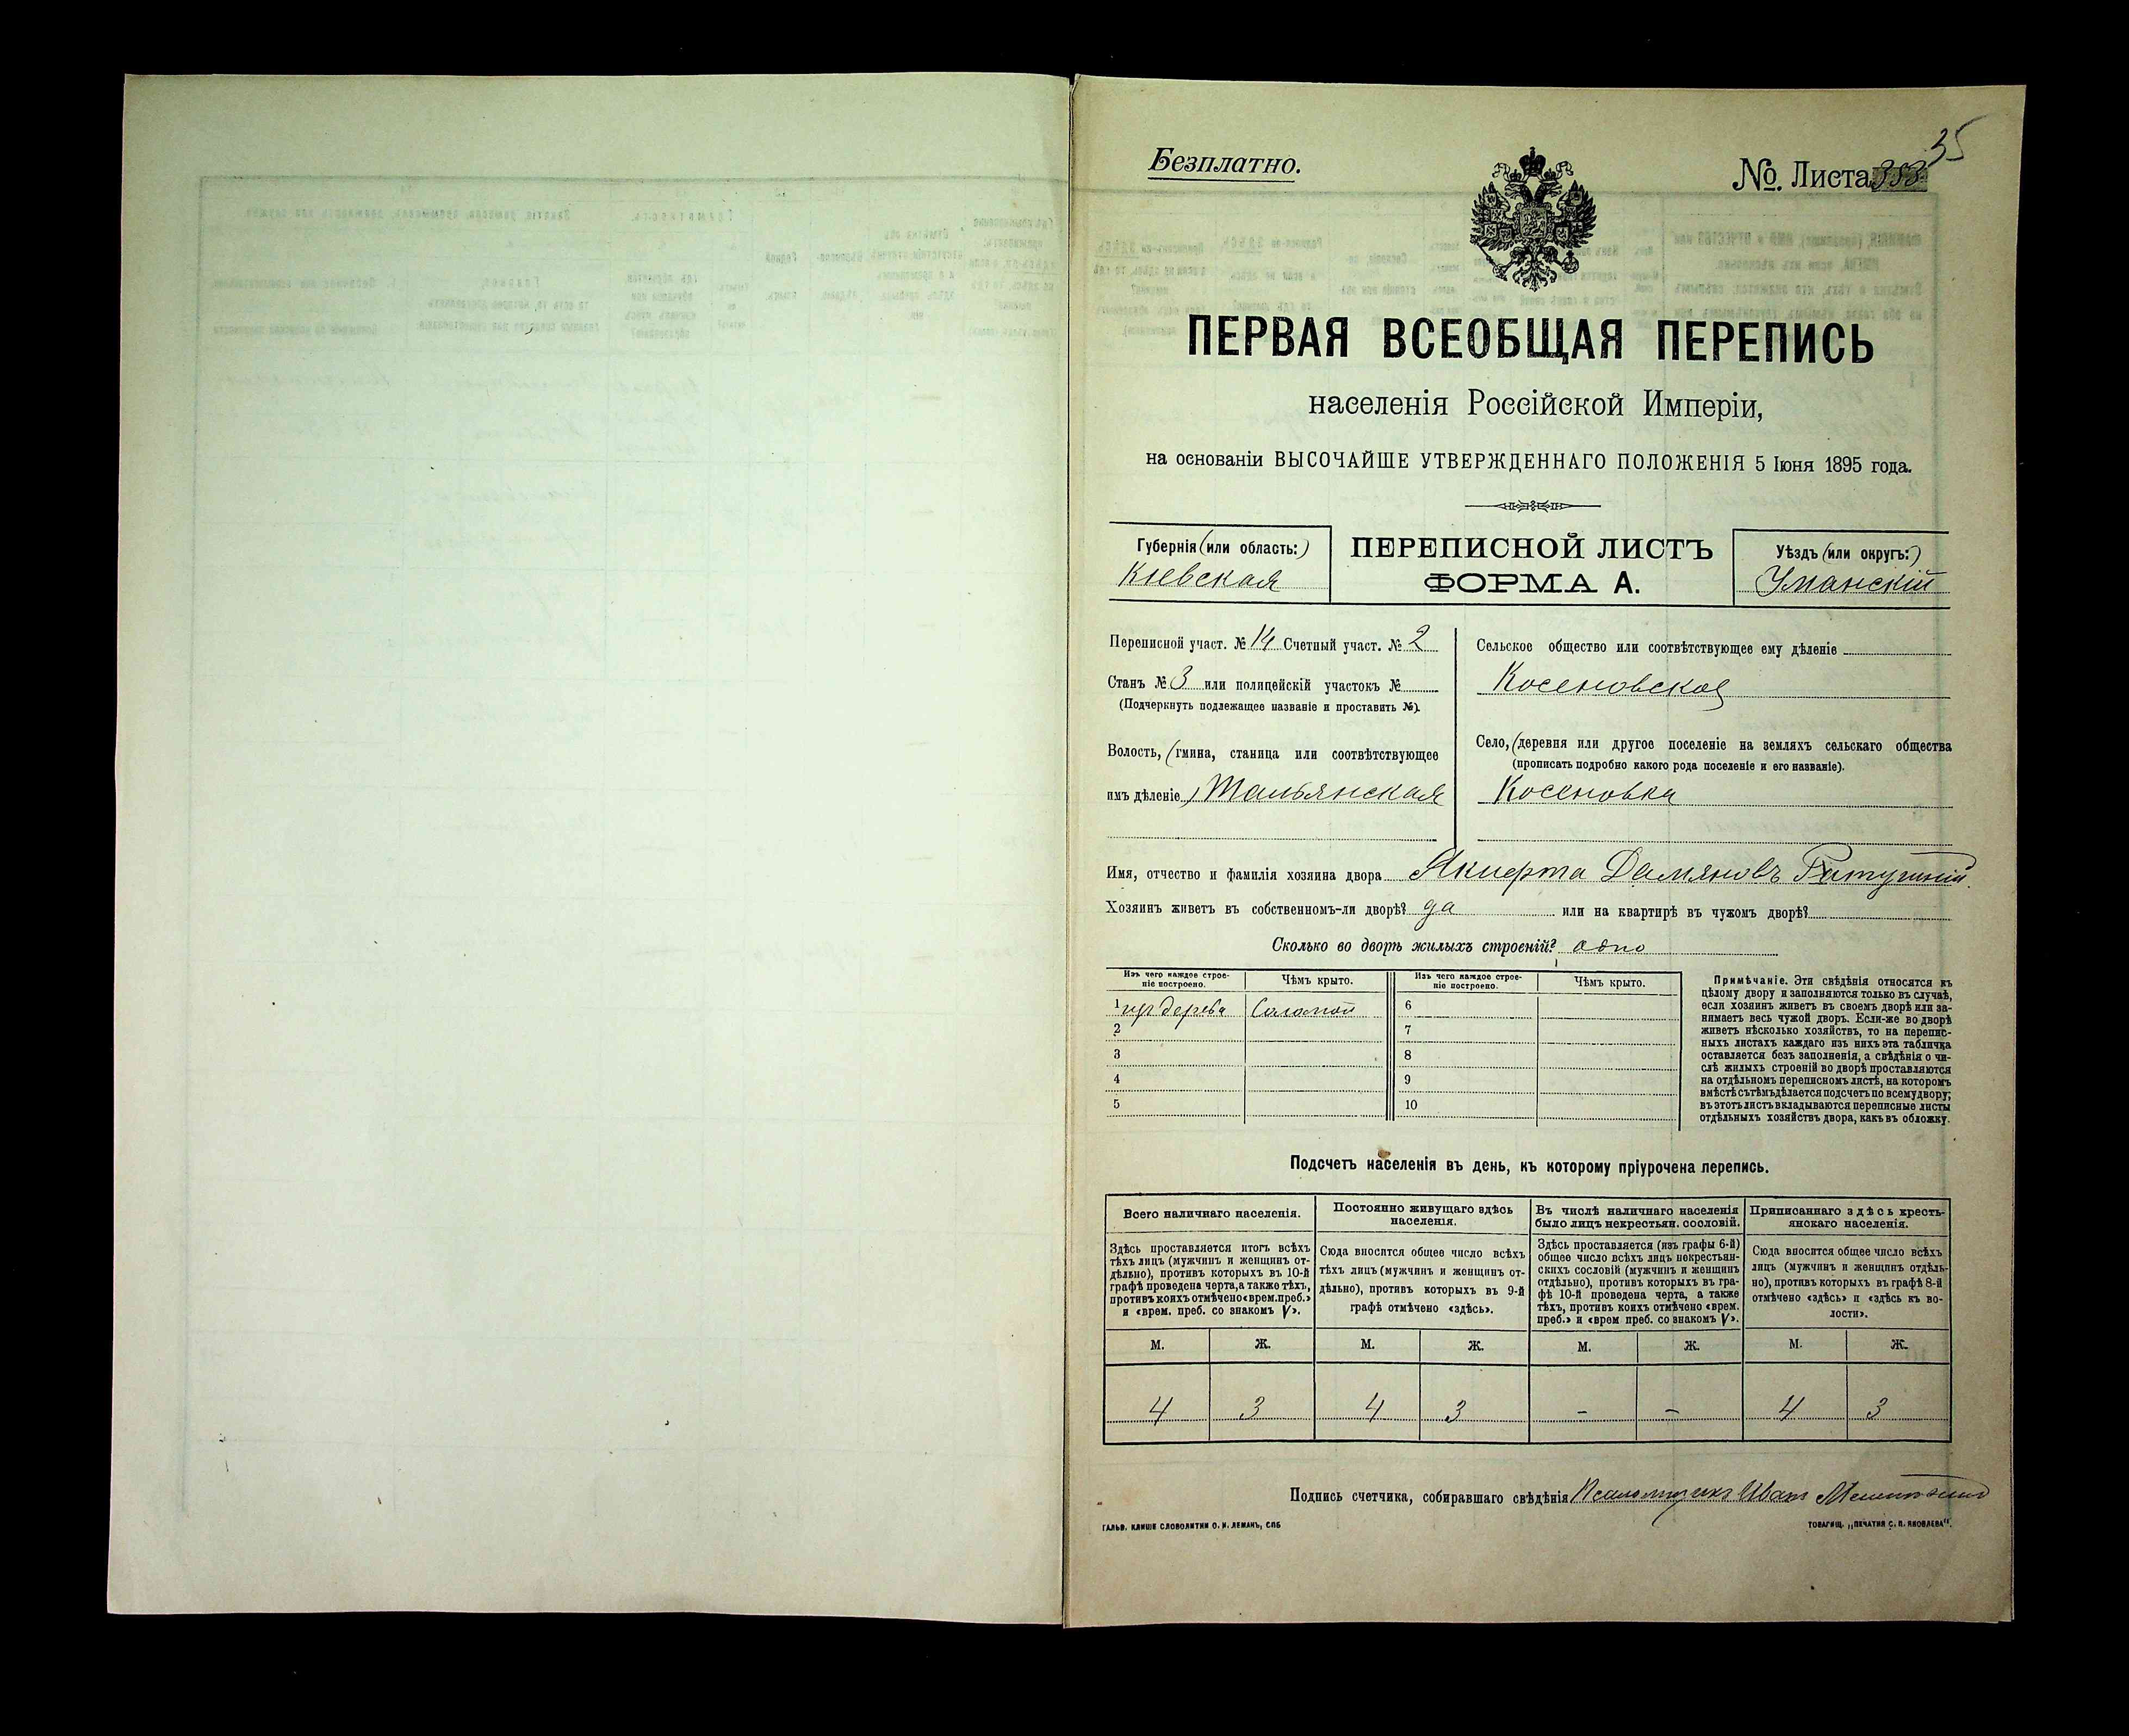 35
Безплатно.
№. Листа 353
ПЕРВАЯ ВСЕОБЩАЯ ПЕРЕПИСЬ
населенія Россійской Имперіи,
на основаніи ВЫСОЧАЙШЕ УТВЕРЖДЕННАГО ПОЛОЖЕНІЯ 5 Іюня 1895 года.
Губернія (или область:)
Кіевская
ПЕРЕПИСНОЙ ЛИСТЪ
ФОРМА А.
Уѣздъ (или округъ:)
Уманскій
Переписной участ. № 14 Счетный участ. № 2
Станъ № 3 или полицейскій участокъ №
(Подчеркнуть подлежащее названіе и проставить №).
Волость, (гмина, станица или соотвѣтствующее
имъ дѣленіе) Тальянская
Сельское общество или соотвѣтствующее ему дѣленіе
Косеновское
Село, (деревня или другое поселеніе на земляхъ сельскаго общества
(прописать подробно какого рода поселеніе и его названіе).
Косеновка
Имя, отчество и фамилія хозяина двора Дамяновъ
Хозяинъ живетъ въ собственномъ-ли дворѣ? да или на квартирѣ въ чужомъ дворѣ?
Сколько во дворѣ жилыхъ строеній? одно
Изъ чего каждое строе-
ніе построено.
Чѣмъ крыто.
Изъ чего каждое строе-
ніе построено.
Чѣмъ крыто.
1 изъ дерева Соломой 6
2 7
3 8
4 9
5 10
Примѣчаніе. Эти свѣдѣнія относятся къ
цѣлому двору и заполняются только въ случаѣ,
если хозяинъ живетъ въ своемъ дворѣ или за-
нимаетъ весь чужой дворъ. Если-же во дворѣ
живетъ нѣсколько хозяйствъ, то на перепис-
ныхъ листахъ каждаго изъ нихъ эта табличка
оставляется безъ заполненія, а свѣдѣнія о чи-
слѣ жилыхъ строеній во дворѣ проставляются
на отдѣльномъ переписномъ листѣ, на которомъ
вмѣстѣ съ тѣмъ дѣлается подсчетъ по всему двору;
въ этотъ листъ вкладываются переписные листы
отдѣльныхъ хозяйствъ двора, какъ въ обложку.
Подсчетъ населенія въ день, къ которому пріурочена перепись.
Всего наличнаго населенія.
Здѣсь проставляется итогъ всѣхъ
тѣхъ лицъ (мужчинъ и женщинъ от-
дѣльно), противъ которыхъ въ 10-й
графѣ проведена черта, а также тѣхъ,
противъ коихъ отмѣчено «врем. преб.»
и «врем. преб. со знакомъ V».
Постоянно живущаго здѣсь
населенія.
Сюда вносится общее число всѣхъ
тѣхъ лицъ (мужчинъ и женщинъ от-
дѣльно), противъ которыхъ въ 9-й
графѣ отмѣчено «здѣсь».
Въ числѣ наличнаго населенія
было лицъ некрестьян. сословій.
Здѣсь проставляется (изъ графы 6-й)
общее число всѣхъ лицъ некрестьян-
скихъ сословій (мужчинъ и женщинъ
отдѣльно), противъ которыхъ въ гра-
фѣ 10-й проведена черта, а также
тѣхъ, противъ коихъ отмѣчено «врем.
преб.» и «врем преб. со знакомъ V».
Приписаннаго здѣсь кресть-
янскаго населенія.
Сюда вносится общее число всѣхъ
лицъ (мужчинъ и женщинъ отдѣль-
но), противъ которыхъ въ графѣ 8-й
отмѣчено «здѣсь» и «здѣсь къ во-
лости».
М. Ж. М. Ж. М. Ж. М. Ж.
4 3 4 3 – – 4 3
Подпись счетчика, собиравшаго свѣдѣнія Псаломщикъ Иванъ
ГАЛЬВ. КЛИШЕ СЛОВОЛИТНИ О. И. ЛЕМАНЪ, СПБ
ТОВАРИЩ. „ПЕЧАТНЯ С. П. ЯКОВЛЕВА".